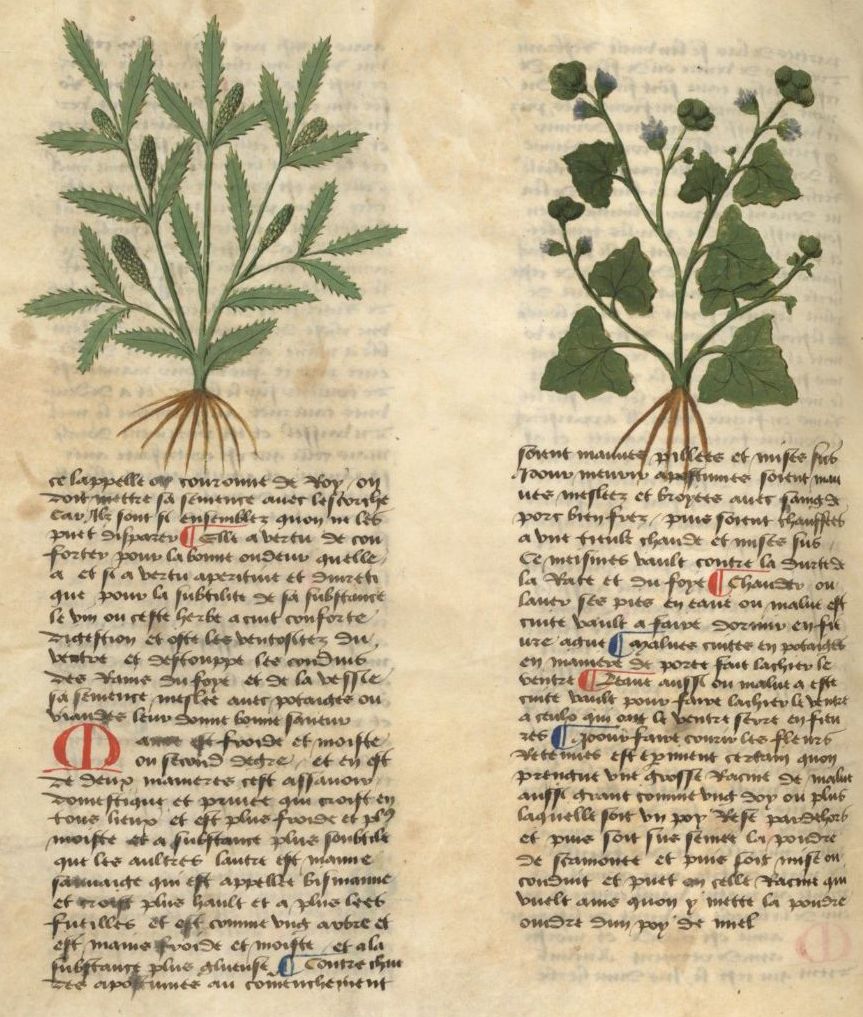 ce lappelle on couronne de Roy / on
doit mettre sa semence avec lescorche
Car Ilz sont si ensemblez quon ne les
puet disparer ¶ Elle a vertu de con
forter pour la bonne oudeur quelle
a et si a vertu aperitive et diureti
que pour la subtilite de sa substance
le vin ou ceste herbe a cuit conforte
digestion et oste les ventositez du
ventre et destouppe les conduis
des Rains du foye et de la vessie
sa semence meslee avec potaiges ou
viandes leur donne bonne saveur
Mauve est froide et moiste
ou second degre / et en est
de deux manieres cest assavoir
domestique et privee qui croist en
tous lieux et est plus froide et plus
moiste et a substance plus soubtile
que les aultres lautre est mauve
sauvaige qui est appellee bismauve
et croist plus hault et a plus lees
fueilles et est comme ung arbre et
est mains froide et moiste et a la
substance plus glueuse ¶ Contre chau
des apostumes au commenchement
soient mauves pillees et mises sus
Pour meurir apostumes soient mau
ves meslees et broyees avec saing de
porc bien frez / puis soient chauffees
a une tieule chaude et mises sus
Ce meismes vault contre la durte de
la Rate et du foye ¶ Chauder ou
laver ses pies en eaue ou malve est
cuite vault a faire dormir en fie
vre ague ¶ Malves cuites en potaiges
en maniere de poree fait lachier le
ventre ¶ Leaue aussi ou malve a este
cuite vault pour faire lachier le ventre
a ceulx qui ont le ventre serre en fieu
res ¶ Pour faire courir les fleurs
Retenues est experiment certain quon
prengne une grosse Racine de malve
aussi grant comme ung doy ou plus
laquelle soit un poy Rese par dehors
et puis soit sus semee la poudre
de scamonee et puis soit mise ou
conduit et puet on celle Racine qui
vuelt ains quon y mette la poudre
oindre dun poy de miel